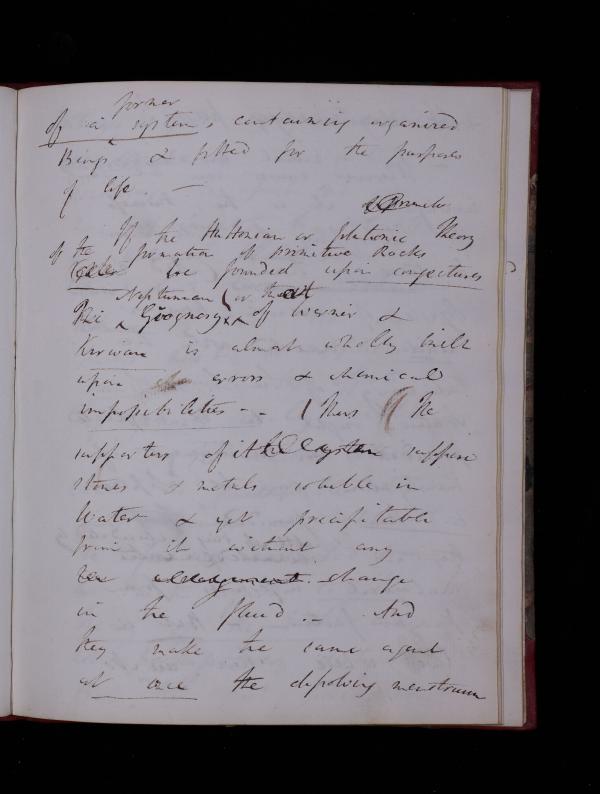 former
of a system, containing organized
Beings & fitted for the purposes
of life. —
If the Huttonian or Plutonic Theory
of the formation of primitive Rocks
be founded upon conjectures
Neptunian or that
The Geognosy of Werner &
Kirwan is almost wholly built
upon errors & chemical
impossibilities - - Thus The
supporters of it system suppose
stones & metals soluble in
Water & yet precipitable
from it without any
change
in the fluid. – And
they make the same agent
at once the dissolving menstruum